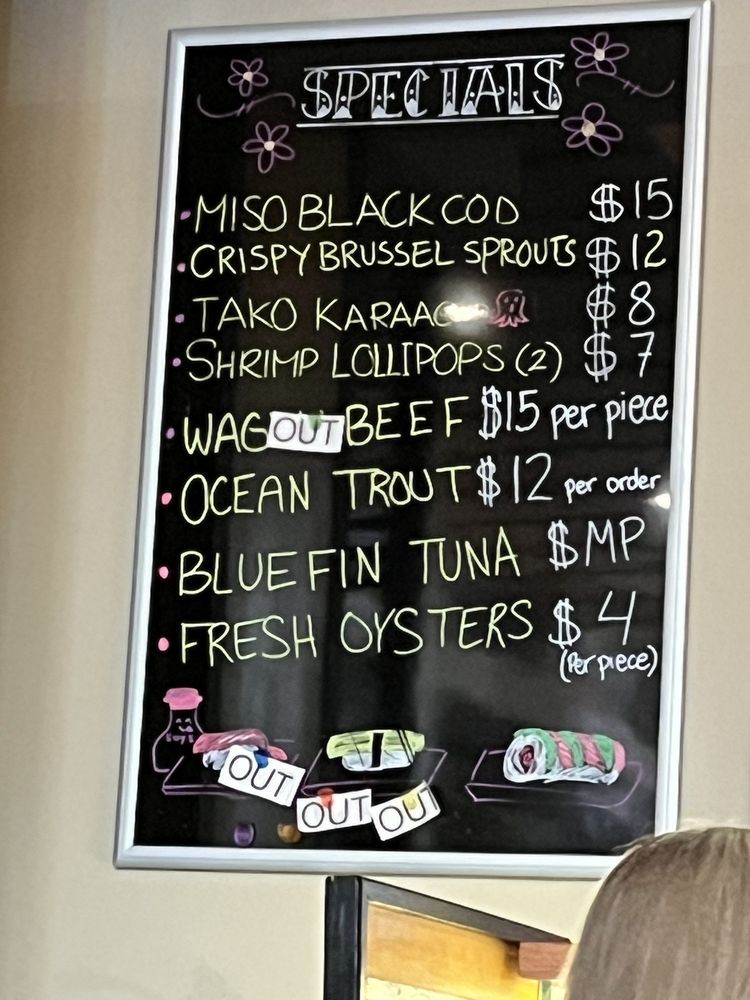 SPECIALS
• MISO BLACK COD $15
• CRISPY BRUSSEL SPROUTS $12
• TAKO $8
• SHRIMP LOLLIPOPS (2) $7
• OUT BEEF $15 per piece
• OCEAN TROUT $12 per order
• BLUEFIN TUNA $MP
• FRESH OYSTERS $4
(Per piece)
SOY
OUT
OUT OUT